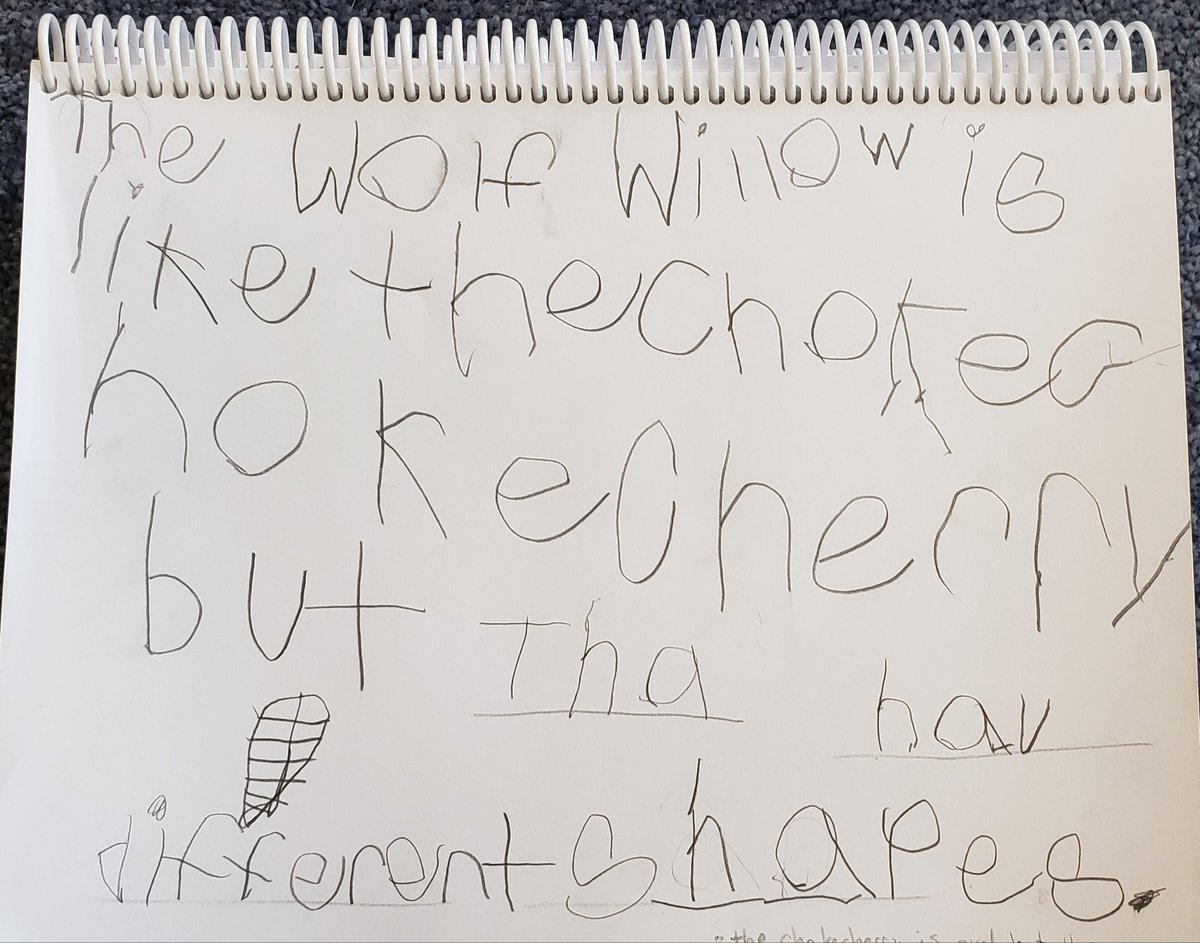 The Wolf Willow is
like the chokec
hokecherry
but Tha hav
different shapes.
"the chokecherry is